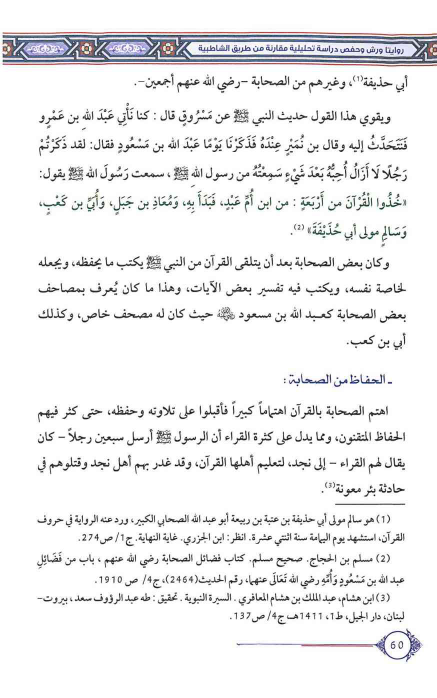 روايتا ورش وحفص دراسة تحليلية مقارنة من طريق الشاطبية
أبي حذيفة(1)، وغيرهم من الصحابة –رضي الله عنهم أجمعين-.
ويقوي هذا القول حديث النبي ﷺ عن مَسْرُوقٍ قال : كنا نَأْتِي عَبْدَ الله بن عَمْرِو
فَنَتَحَدَّثُ إليه وقال بن نُمَيْرٍ عِنْدَهُ فَذَكَرْنَا يَوْمًا عَبْدَ الله بن مَسْعُودٍ فقال: لقد ذَكَرْتُمْ
رَجُلًا لَا أَزَالُ أُحِبُّهُ بَعْدَ شَيْءٍ سَمِعْتُهُ من رسول الله ﷺ ، سمعت رَسُولَ الله ﷺ يقول:
«خُذُوا الْقُرْآنَ من أَرْبَعَةٍ : من ابن أُمِّ عَبْدٍ، فَبَدَأَ بِهِ، وَمُعَاذِ بن جَبَلٍ، وَأُبَيِّ بن كَعْبٍ،
وَسَالِمٍ مولى أبي حُذَيْفَةَ» (2).
وكان بعض الصحابة بعد أن يتلقى القرآن من النبي ﷺ يكتب ما يحفظه، ويجعله
لخاصة نفسه، ويكتب فيه تفسير بعض الآيات، وهذا ما كان يُعرف بمصاحف
بعض الصحابة كعبد الله بن مسعود ﷺ حيث كان له مصحف خاص، وكذلك
أبي بن كعب.
ـ الحفاظ من الصحابة :
اهتم الصحابة بالقرآن اهتماماً كبيراً فأقبلوا على تلاوته وحفظه، حتى كثر فيهم
الحفاظ المتقنون، ومما يدل على كثرة القراء أن الرسول ﷺ أرسل سبعين رجلاً – كان
يقال لهم القراء – إلى نجد، لتعليم أهلها القرآن، وقد غدر بهم أهل نجد وقتلوهم في
حادثة بئر معونة(3).
(1) هو سالم مولى أبي حذيفة بن عتبة بن ربيعة أبو عبد الله الصحابي الكبير، ورد عنه الرواية في حروف
القرآن، استشهد يوم اليمامة سنة اثنتي عشرة. انظر: ابن الجزري. غاية النهاية. ج1/ ص274.
(2) مسلم بن الحجاج. صحيح مسلم. كتاب فضائل الصحابة رضي الله عنهم ، باب من فَضَائِلِ
عبد الله بن مَسْعُودٍ وَأُمِّهِ رضي الله تَعَالَى عنهما، رقم الحديث(2464)، ج4/ ص 1910.
(3) ابن هشام، عبد الملك بن هشام المعافري . السيرة النبوية . تحقيق : طه عبد الرؤوف سعد ، بيروت–
لبنان، دار الجيل، ط1، 1411هـ، ج4/ ص137.
60